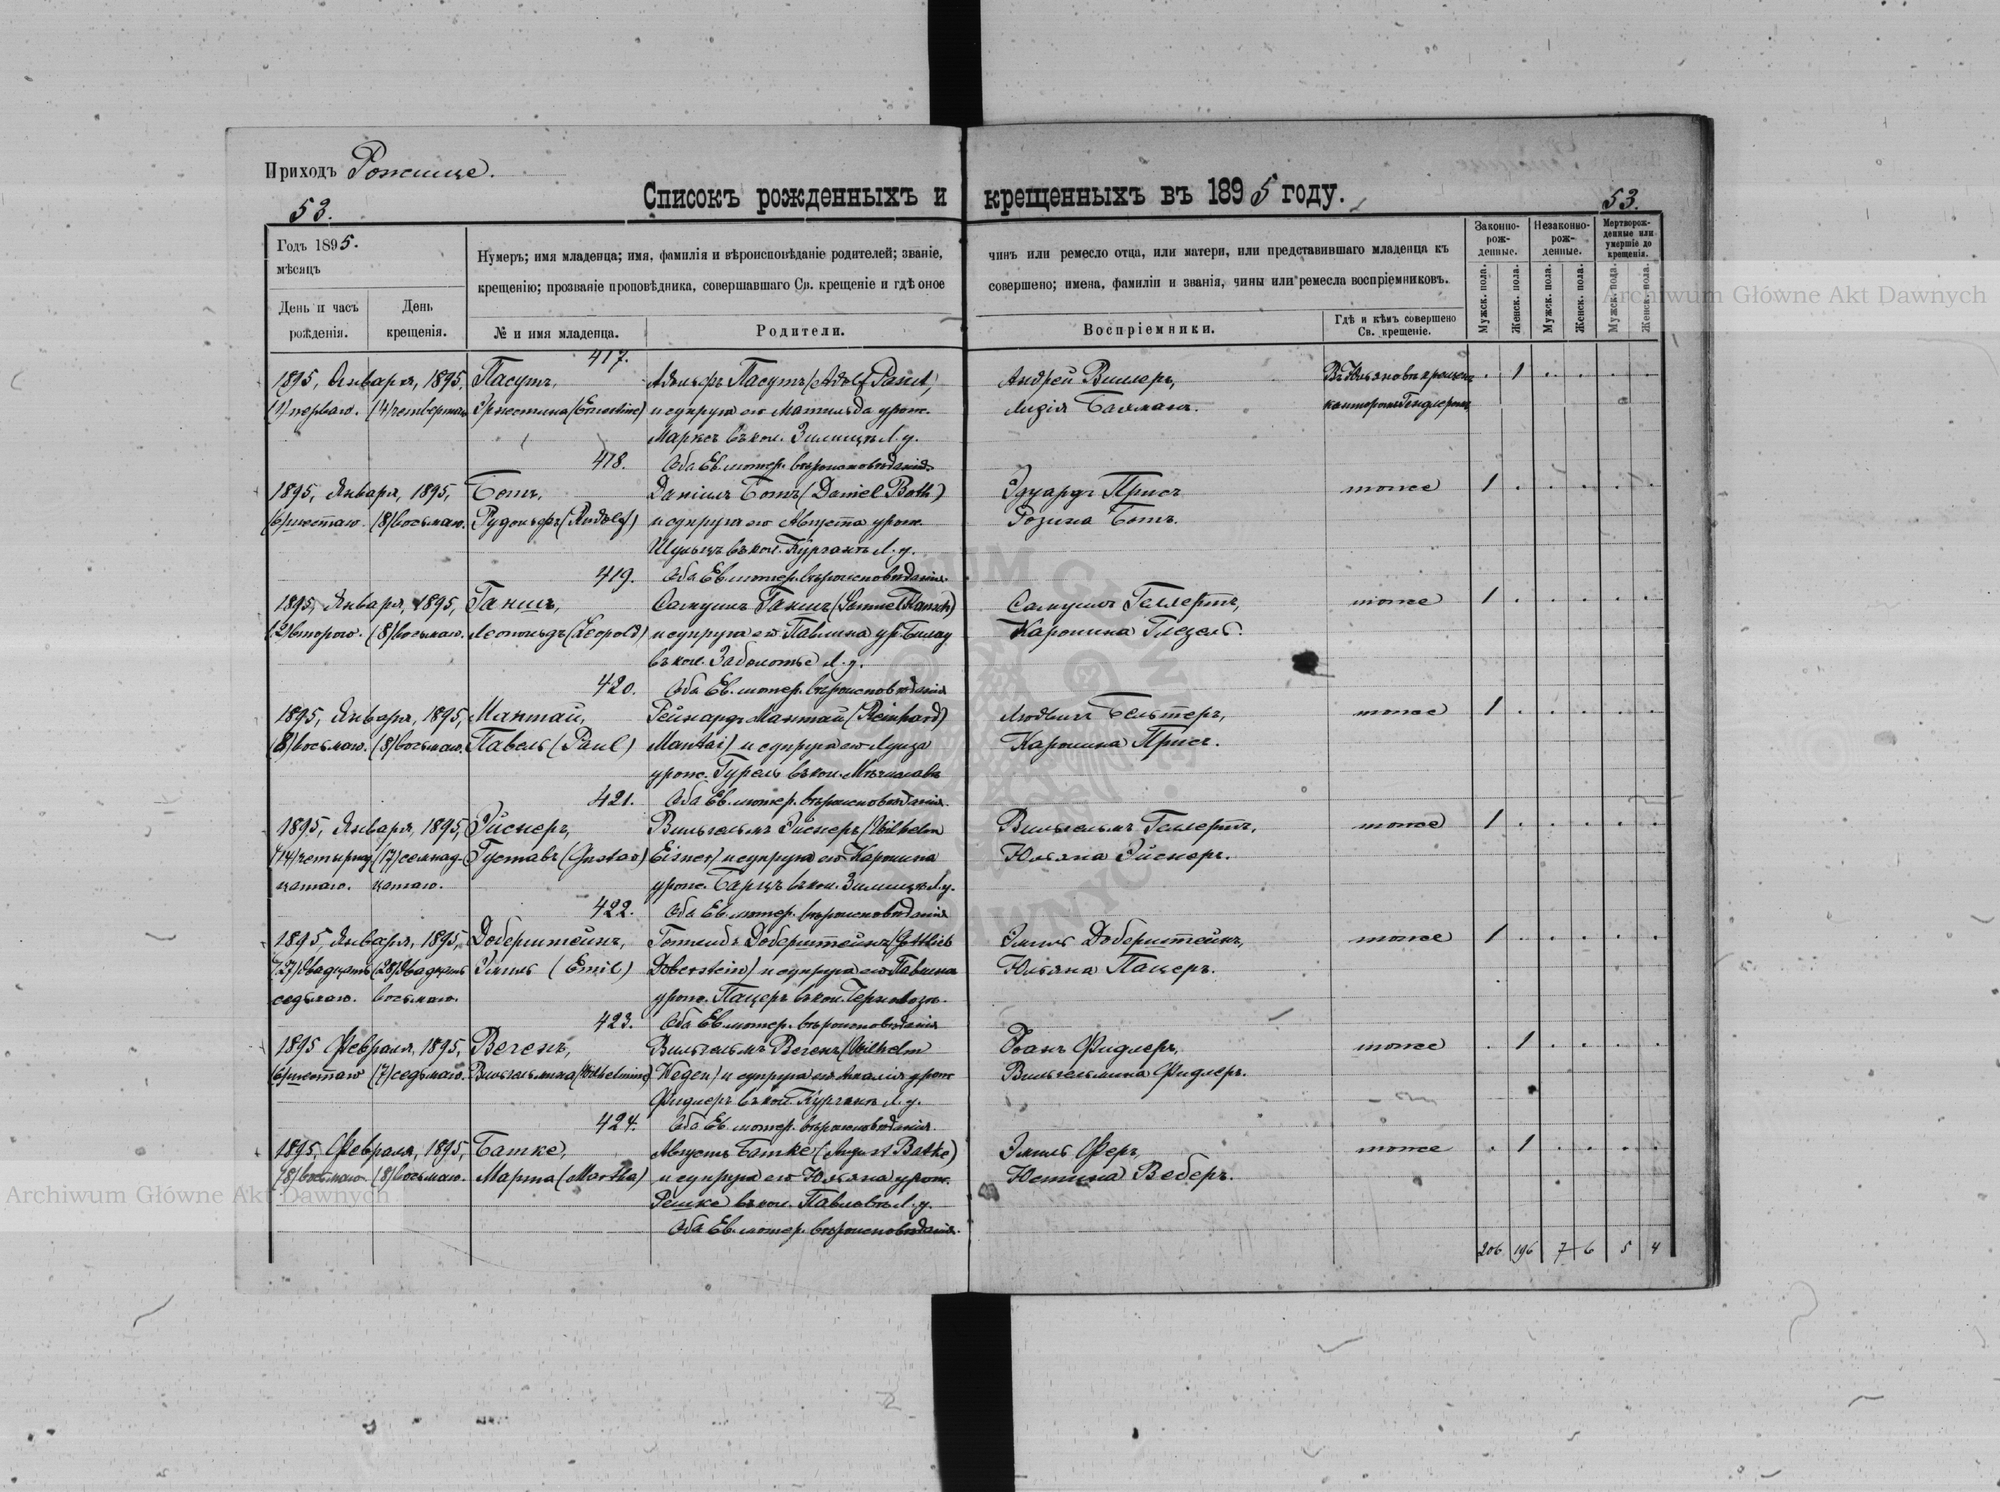 Приходъ Рожище.
Списокъ рожденныхъ и крещенныхъ въ 1895 году.
53.
53.
Годъ 1895.
мѣсяцъ
День и часъ рожденія.
День крещенія.
Нумеръ; имя младенца; имя, фамилія и вѣроисповѣданіе родителей; званіе,
чинъ или ремесло отца, или матери, или представившаго младенца къ
крещенію; прозваніе проповѣдника, совершавшаго Св. крещеніе и гдѣ оное
совершено; имена, фамиліи и званія, чины или ремесла воспріемниковъ.
№ и имя младенца.
Родители.
Воспріемники.
Гдѣ и кѣмъ совершено Св. крещеніе.
Законно-рож-денные.
Незаконно-рож-денные.
Мертворож-денные или умершіе до крещенія.
Мужск. пола.
Женск. пола.
Мужск. пола.
Женск. пола.
Мужск. пола.
Женск. пола.
417.
1895, Января, 1895, Пасутъ, Адольфъ Пасутъ (Adolf Pasut) Андрей Виллеръ, 1
(1) перваго. (4) четвертаго Эрнестина (Ernestine) и супруга его Матильда урож. Лидія Бахманъ.
Марксъ въ кол. Л. у.
418. Оба Ев. лютер. вѣроисповѣданія
1895, Января, 1895, Ботъ, Даніилъ Ботъ (Daniel Both) Эдуардъ Присъ тоже 1
(6) шестаго. (8) восьмаго. Рудольфъ (Rudolf) и супруга его Августа урож. Розина Ботъ.
Шульцъ въ кол. Курганъ Л. у.
419. Оба Ев. лютер. вѣроисповѣданія.
1895, Января, 1895, Ганшъ, Самуилъ Ганшъ (Samuel Hansch) Самуилъ Геллертъ, тоже 1
(2) второго. (8) восьмаго. Леопольдъ (Leopold) и супруга его Павлина ур.
въ кол. Заболотье Л. у.
420. Оба Ев. лютер. вѣроисповѣданія
1895, Января, 1895, Мантай, Рейнардъ Мантай (Reinhard Людвигъ тоже 1
(8) восьмаго. (8) восьмаго. Павелъ (Paul) Mantai) и супруга его Луиза Каролина Присъ.
урож. въ кол.
421. Оба Ев. лютер. вѣроисповѣданія.
1895, Января, 1895, Эйснеръ, Вильгельмъ Эйснеръ (Wilhelm Вильгельмъ Геллертъ, тоже 1
(14) четырнад- (17) семнад- Густавъ (Gustav) Eisner) и супруга его Каролина Юльяна Эйснеръ.
цатаго. цатаго. урож. Барцъ въ кол. Л. у.
422. Оба Ев. лютер. вѣроисповѣданія
1895, Января, 1895, Доберштейнъ, Готлибъ Доберштейнъ (Gottlieb Эмиль Доберштейнъ, тоже 1
(27) двадцать (28) двадцать Эмиль (Emil) Doberstein) и супруга его Павлина Юльяна Пацеръ.
седьмаго. восьмаго. урож. Пацеръ въ кол.
423. Оба Ев. лютер. вѣроисповѣданія
1895 Февраля, 1895, Вегенъ, Вильгельмъ Вегенъ (Wilhelm Иванъ Фидлеръ, тоже 1
(6) шестаго (7) седьмаго. Вильгельмина (Wilhelmine) Wegen) и супруга его Амалія урож. Вильгельмина Фидлеръ.
Фидлеръ въ кол. Курганъ Л. у.
424. Оба Ев. лютер. вѣроисповѣданія.
1895, Февраля, 1895, Батке, Августъ Батке (August Bathe) Эмиль тоже 1
(8) восьмаго (8) восьмаго. Марта (Martha) и супруга его Юльяна урож. Юстина Веберъ.
Решке въ кол. Павловъ Л. у.
Оба Ев. лютер. вѣроисповѣданія.
206 196 7 6 5 4
Archiwum Główne Akt Dawnych
Archiwum Główne Akt Dawnych